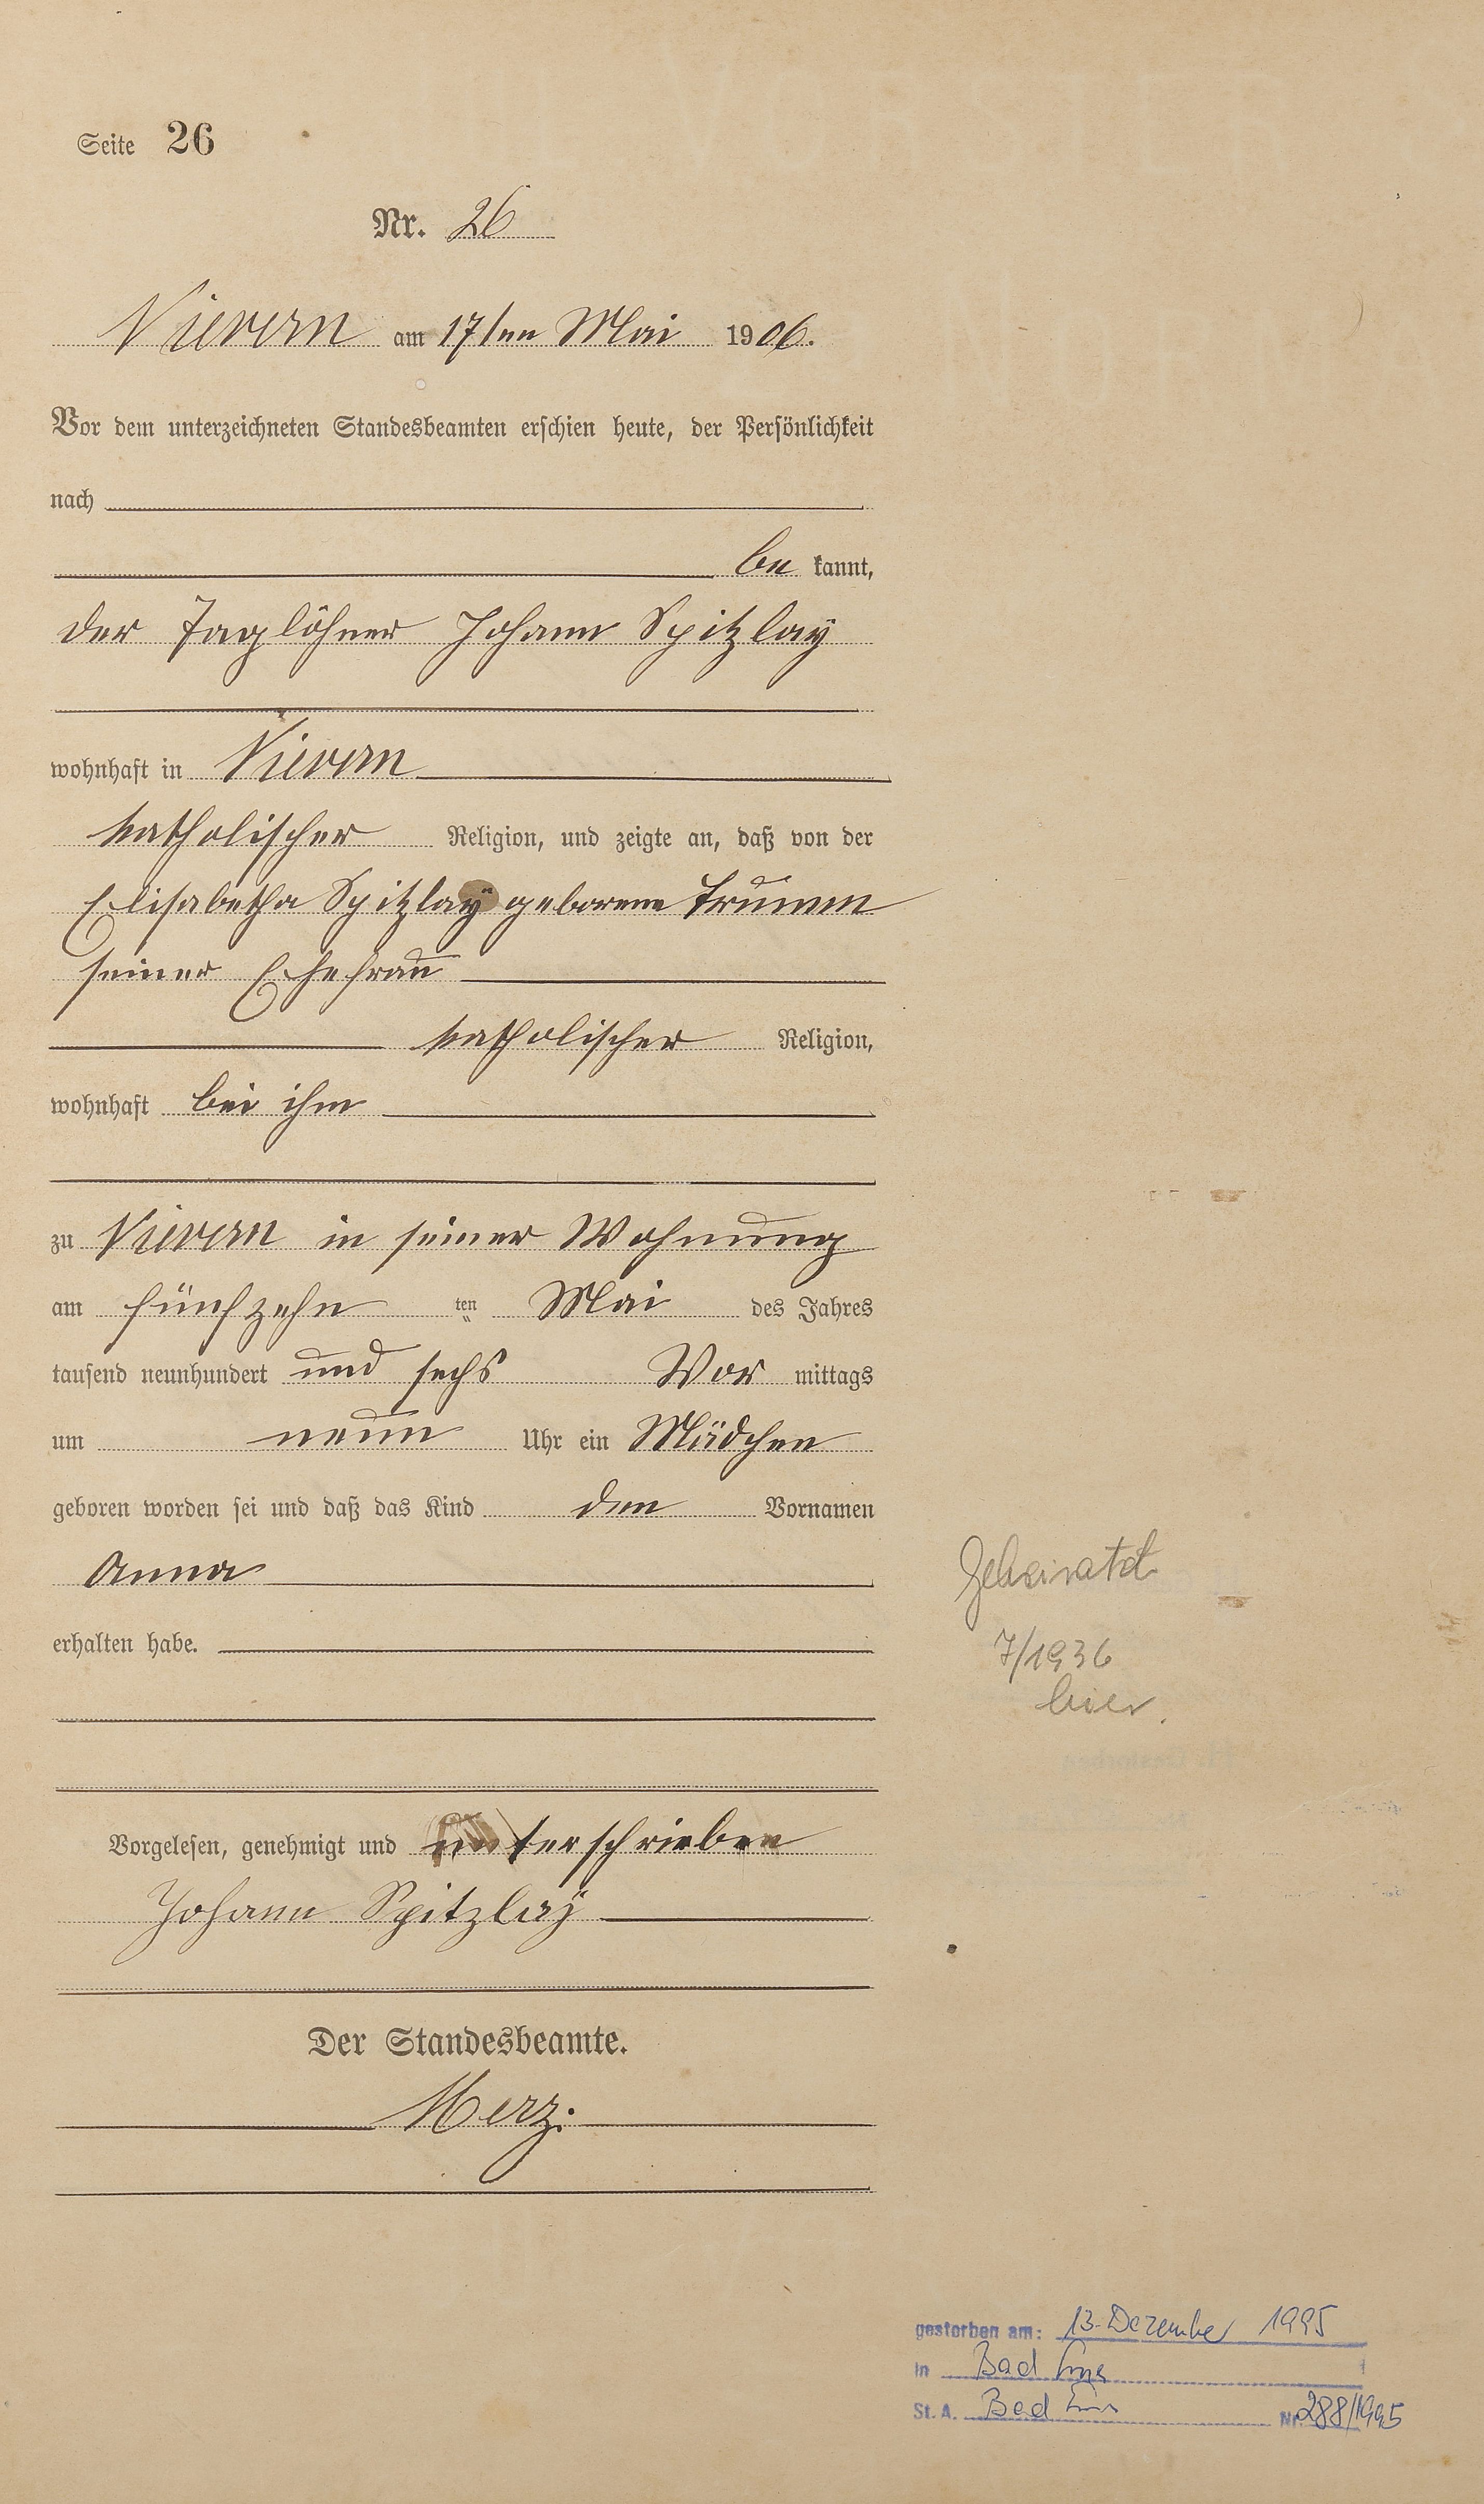 Seite 26
Nr. 26
Nievern am 17ten Mai 1906.
Vor dem unterzeichneten Standesbeamten erschien heute, der Persönlichkeit
nach
be kannt,
der Taglöhner Johann Spitzlay
wohnhaft in Nievern
katholischer Religion, und zeigte an, daß von der
Elisabetha Spitzlaÿ geborene Trumm
seiner Ehefrau
katholischer Religion,
wohnhaft bei ihm
zu Nievern in seiner Wohnung
am fünfzehn ten Mai des Jahres
tausend neunhundert und sechs Vor mittags
um neun Uhr ein Mädchen
geboren worden sei und daß das Kind den Vornamen
Anna
erhalten habe.
Geheiratet
7/1936
hier.
Vorgelesen, genehmigt und unterschrieben
Johann Spitzlaÿ
Der Standesbeamte.
Merz.
gestorben am: 13. Dezember 1995
in Bad Ems
St. A. Bad Ems Nr. 288/1995